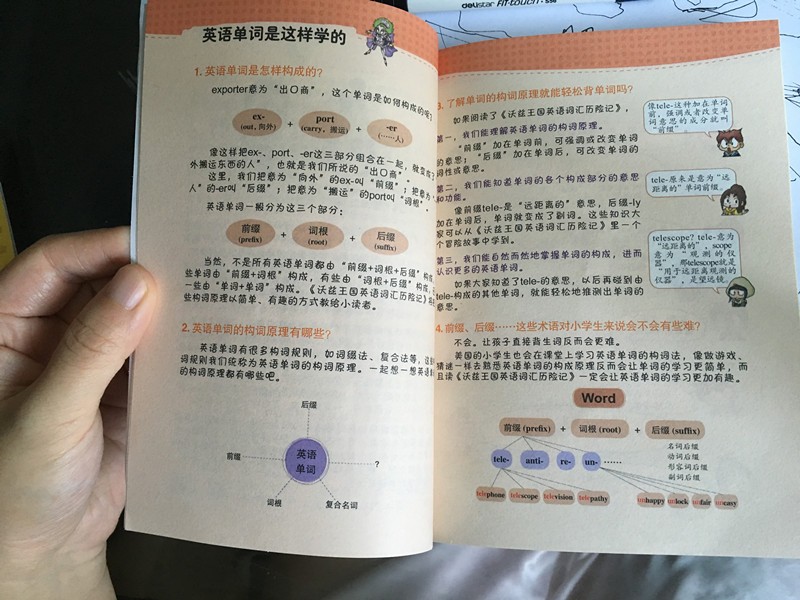 delistar FIT-touch
英语单词是这样学的
1. 英语单词是怎样构成的?
exporter意为“出口商”,这个单词是如何构成的呢?
ex-
(out, 向外)
+
port
(carry, 搬运)
+
-er
(……人)
像这样把ex-、port、-er这三部分组合在一起,就变成了
外搬运东西的人”,也就是我们所说的“出口商”。
这里,我们把意为“向外”的ex-叫“前缀”;把意为“
人”的-er叫“后缀”;把意为“搬运”的port叫“词根”。
英语单词一般分为这三个部分:
前缀
(prefix)
+
词根
(root)
+
后缀
(suffix)
当然,不是所有英语单词都由“前缀+词根+后缀”构成,
些单词由“前缀+词根”构成,有些由“词根+后缀”构成,
一些由“单词+单词”构成。《沃兹王国英语词汇历险记》将
些构词原理以简单、有趣的方式教给小读者。
2. 英语单词的构词原理有哪些?
英语单词有很多构词规则,如词缀法、复合法等,这些
词规则我们统称为英语单词的构词原理。一起想一想英语单
的构词原理都有哪些吧。
后缀
前缀
英语
单词
?
词根
复合名词
3. 了解单词的构词原理就能轻松背单词吗?
如果阅读了《沃兹王国英语词汇历险记》,
第一,我们能理解英语单词的构词原理。
“前缀”加在单词前,可强调或改变单词
的意思;“后缀”加在单词后,可改变单词的
词性或意思。
第二,我们能知道单词的各个构成部分的意思
和功能。
像前缀tele-是“远距离的”意思,后缀-ly
加在单词后,单词就变成了副词。这些知识大
家可以从《沃兹王国英语词汇历险记》里一个
个冒险故事中学到。
第三,我们能自然而然地掌握单词的构成,进而
认识更多的英语单词。
如果大家知道了tele-的意思,以后再碰到由
tele-构成的其他单词,就能轻松地推测出单词的
意思。
像tele-这种加在单词
前,强调或者改变单
词意思的成分就叫
“前缀”
tele-原来是意为“远
距离的”单词前缀。
telescope? tele-意为
“远距离的”,scope
意为“观测的仪
器”,那telescope就是
“用于远距离观测的
仪器”,是望远镜。
4. 前缀、后缀……这些术语对小学生来说会不会有些难?
不会。让孩子直接背生词反而会更难。
美国的小学生也会在课堂上学习英语单词的构词法,像做游戏、
猜谜一样去熟悉英语单词的构成原理反而会让单词的学习更简单,而
且读《沃兹王国英语词汇历险记》一定会让英语单词的学习更加有趣。
Word
前缀 (prefix)
+
词根 (root)
+
后缀 (suffix)
tele-
anti-
re-
un-
……
名词后缀
动词后缀
形容词后缀
副词后缀
telephone
telescope
television
telepathy
unhappy
unlock
unfair
uneasy